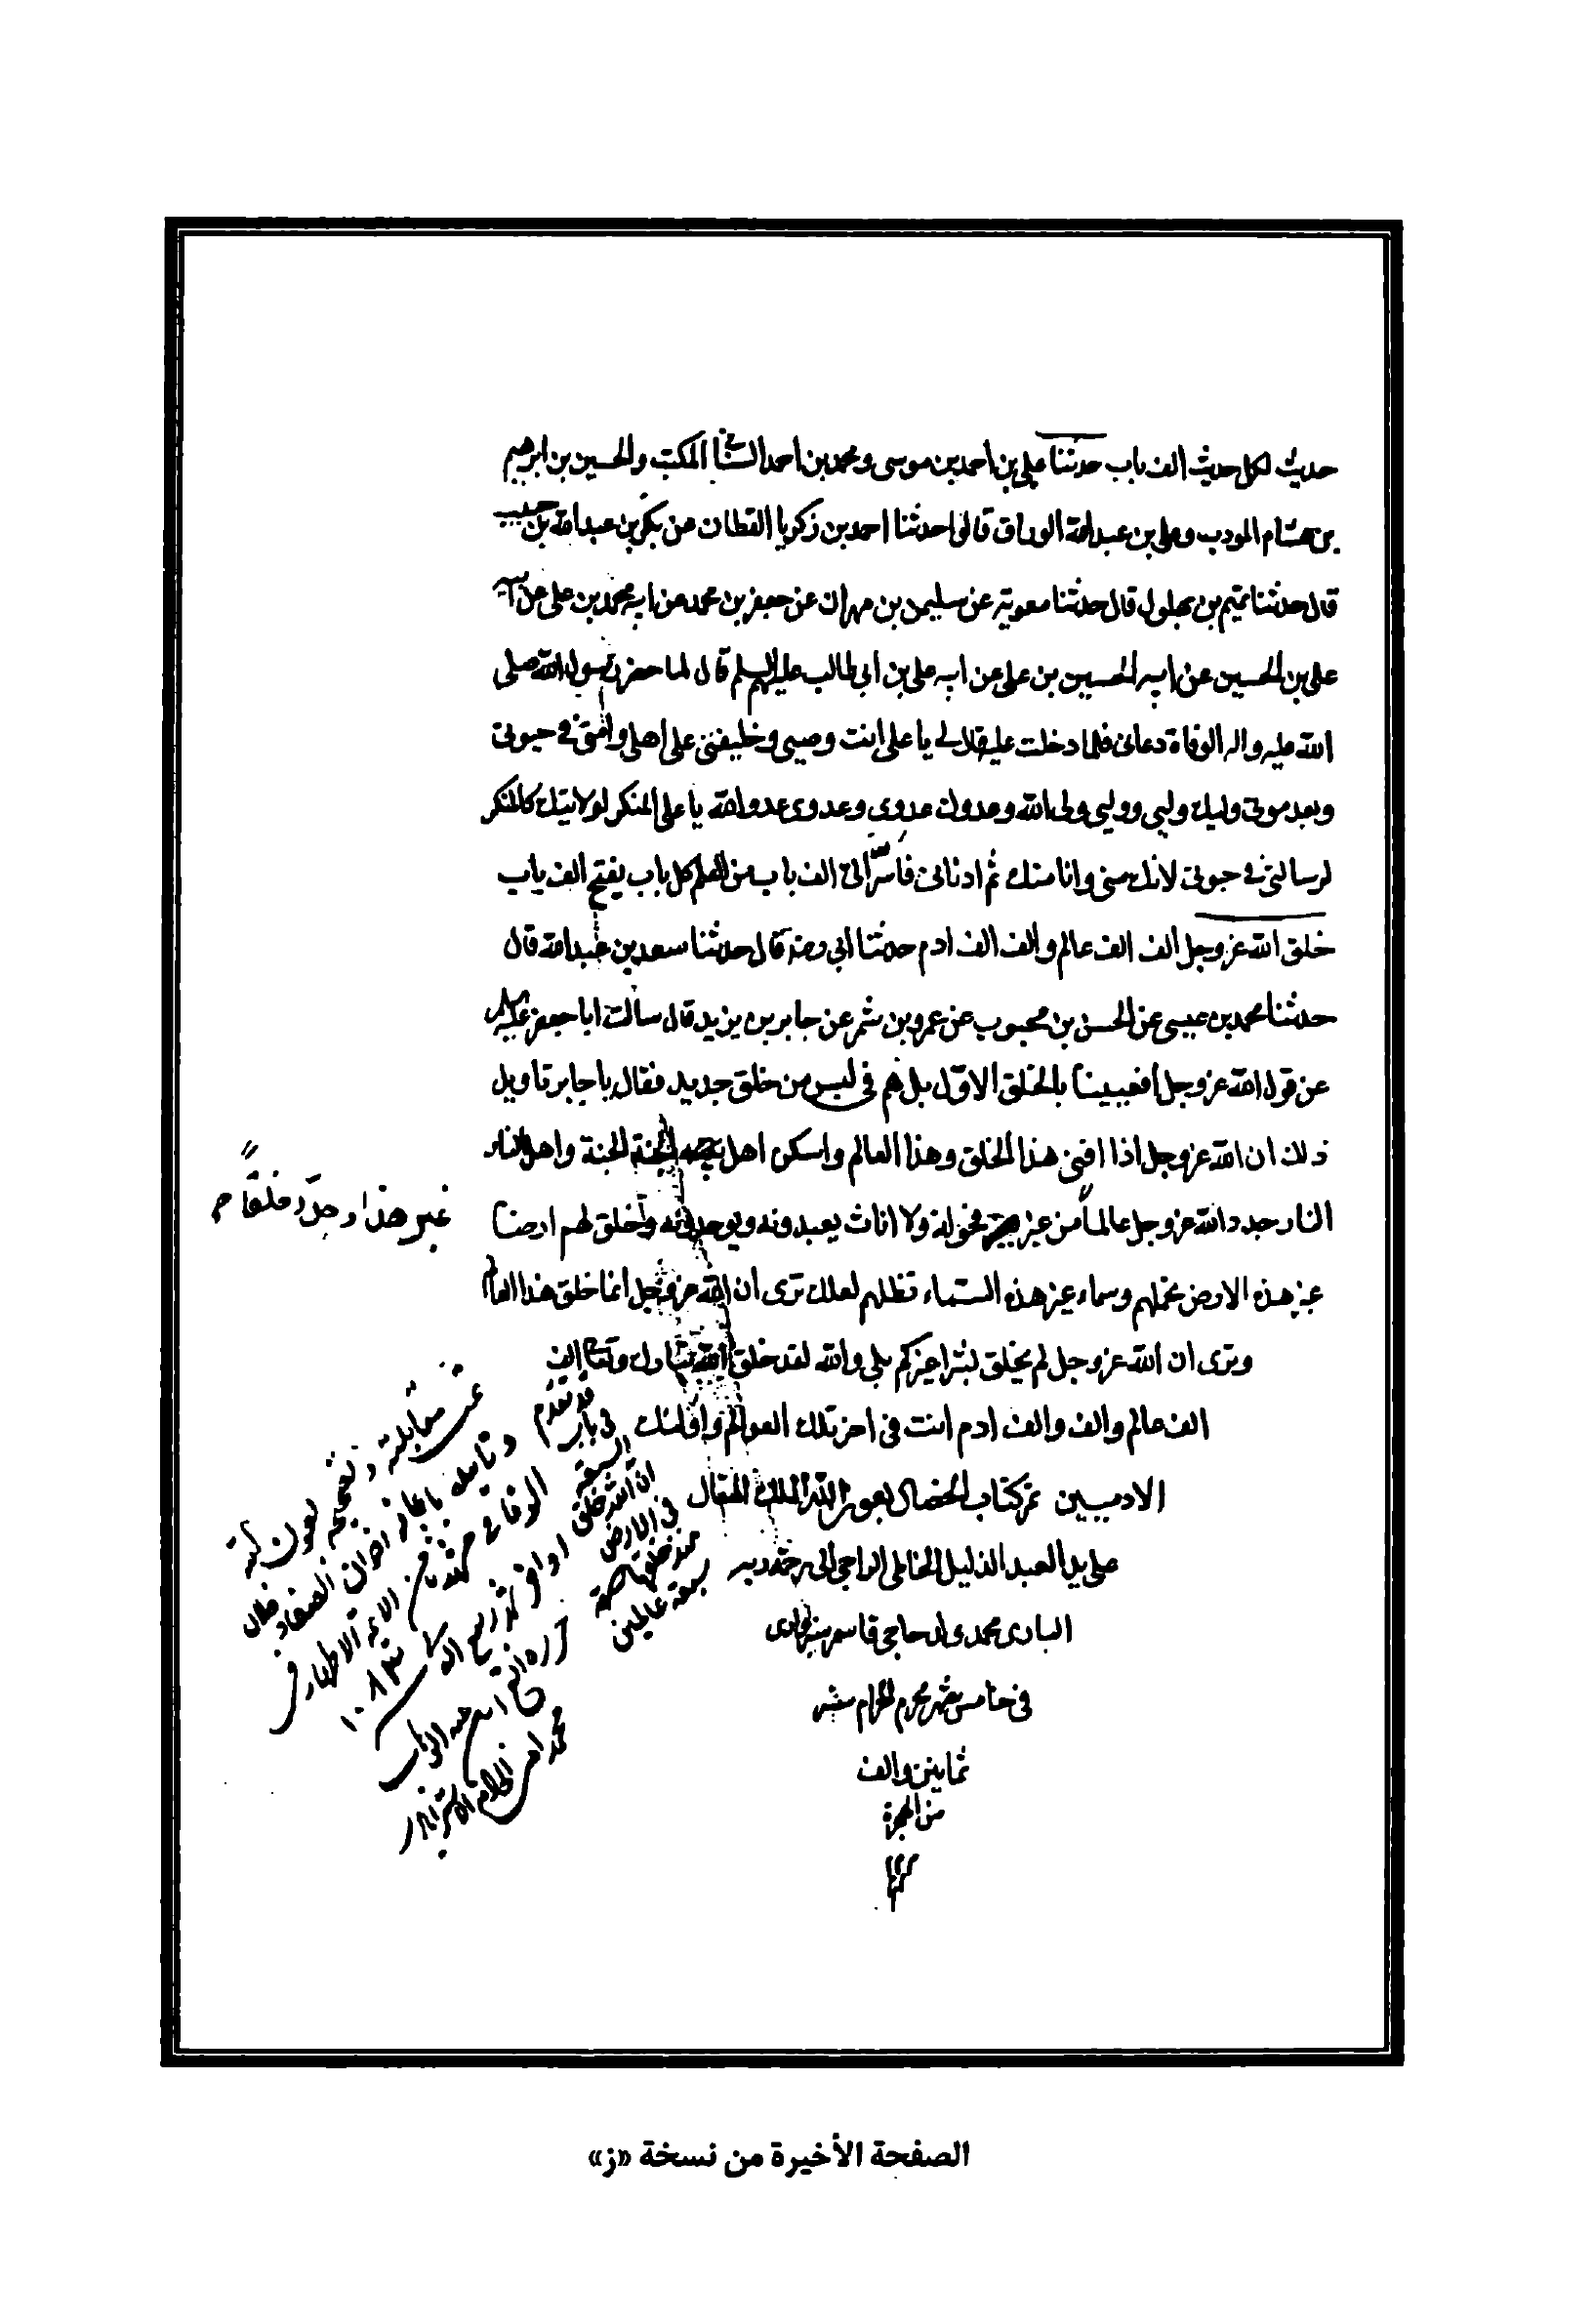 حديث لكل حديث الف باب حدثنا علي بن احمد بن موسى ومحمد بن احمد السناني المكتب والحسين بن ابرهيم
بن هشام المودب وعلي بن عبد الله الوراق قالوا حدثنا احمد بن زكريا القطان عن بكر بن عبد الله بن حبيب
قال حدثنا تميم بن بهلول قال حدثنا معوية عن سليمن بن مهران عن جعفر بن محمد عن ابيه محمد بن علي عن ابيه
علي بن الحسين عن ابيه الحسين بن علي عن ابيه علي بن ابي طالب عليهم السلم قال لما حضرت رسول الله صلى
الله عليه واله الوفاة دعاني فلما دخلت عليه قال لي يا علي انت وصيي وخليفتي على اهلي وامتي في حيوتي
وبعد موتي وليك وليي ووليي ولي الله وعدوك عدوي وعدوي عدو الله يا علي المنكر لولايتك كالمنكر
لرسالتي في حيوتي لانك مني وانا منك ثم ادناني فاسرّ الي الف باب من العلم كل باب يفتح الف باب
خلق الله عز وجل الف الف عالم والف الف ادم حدثنا ابي رضه قال حدثنا سعد بن عبد الله قال
حدثنا محمد بن عيسى عن الحسن بن محبوب عن عمرو بن شمر عن جابر بن يزيد قال سالت ابا جعفر عليه السلم
عن قول الله عز وجل افعيينا بالخلق الاوّل بل هم في لبس من خلق جديد فقال يا جابر تاويل
ذلك ان الله عز وجل اذا افنى هذا الخلق وهذا العالم واسكن اهل الجنة الجنة واهل النار
النار جدد الله عز وجل عالماً من غير فحولة ولا اناث يعبدونه ويوحدونه وخلق لهم ارضا
غير هذا وجدّد خلقاً
غير هذه الارض تحملهم وسماء غير هذه السّماء تظلهم لعلك ترى ان الله عز وجل انما خلق هذا العالم
وترى ان الله عز وجل لم يخلق بشرا غيركم بلى والله لقد خلق الله تبارك وتعالى الف
الف عالم والف والف ادم انت في اخر تلك العوالم واولئك
الادميين تم كتاب الخصال بعون الله الملك المتعال
على يد العبد الذليل الخاطي الراجي الى رحمة ربه
الباري محمدي ولد حاجي قاسم
في خامس شهر محرم الحرام سنه
ثمانين والف
من الهجرة
قد تقدم
في باب
السبعة
ان الله خلق
في الارض
منذ خلقها
سبعة عالمين
١٠٨٣
الصفحة الأخيرة من نسخة «ز»